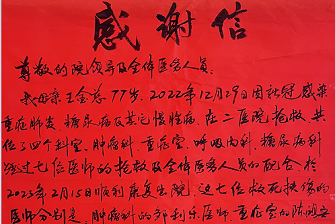 感谢信
尊敬的院领导及全体医务人员：
我母亲王金总77岁，2022年12月29日因新冠感染
重症肺炎、糖尿病及其它慢性病，在二医院抢救，共
住了四个科室，肿瘤科、重症室、呼吸内科、糖尿病科
经过七位医师的抢救及全体医务人员的配合，于
2023年2月15日顺利康复出院，这七位救死扶伤的
医师分别是：肿瘤科的邹利乐医师，重症室的陈